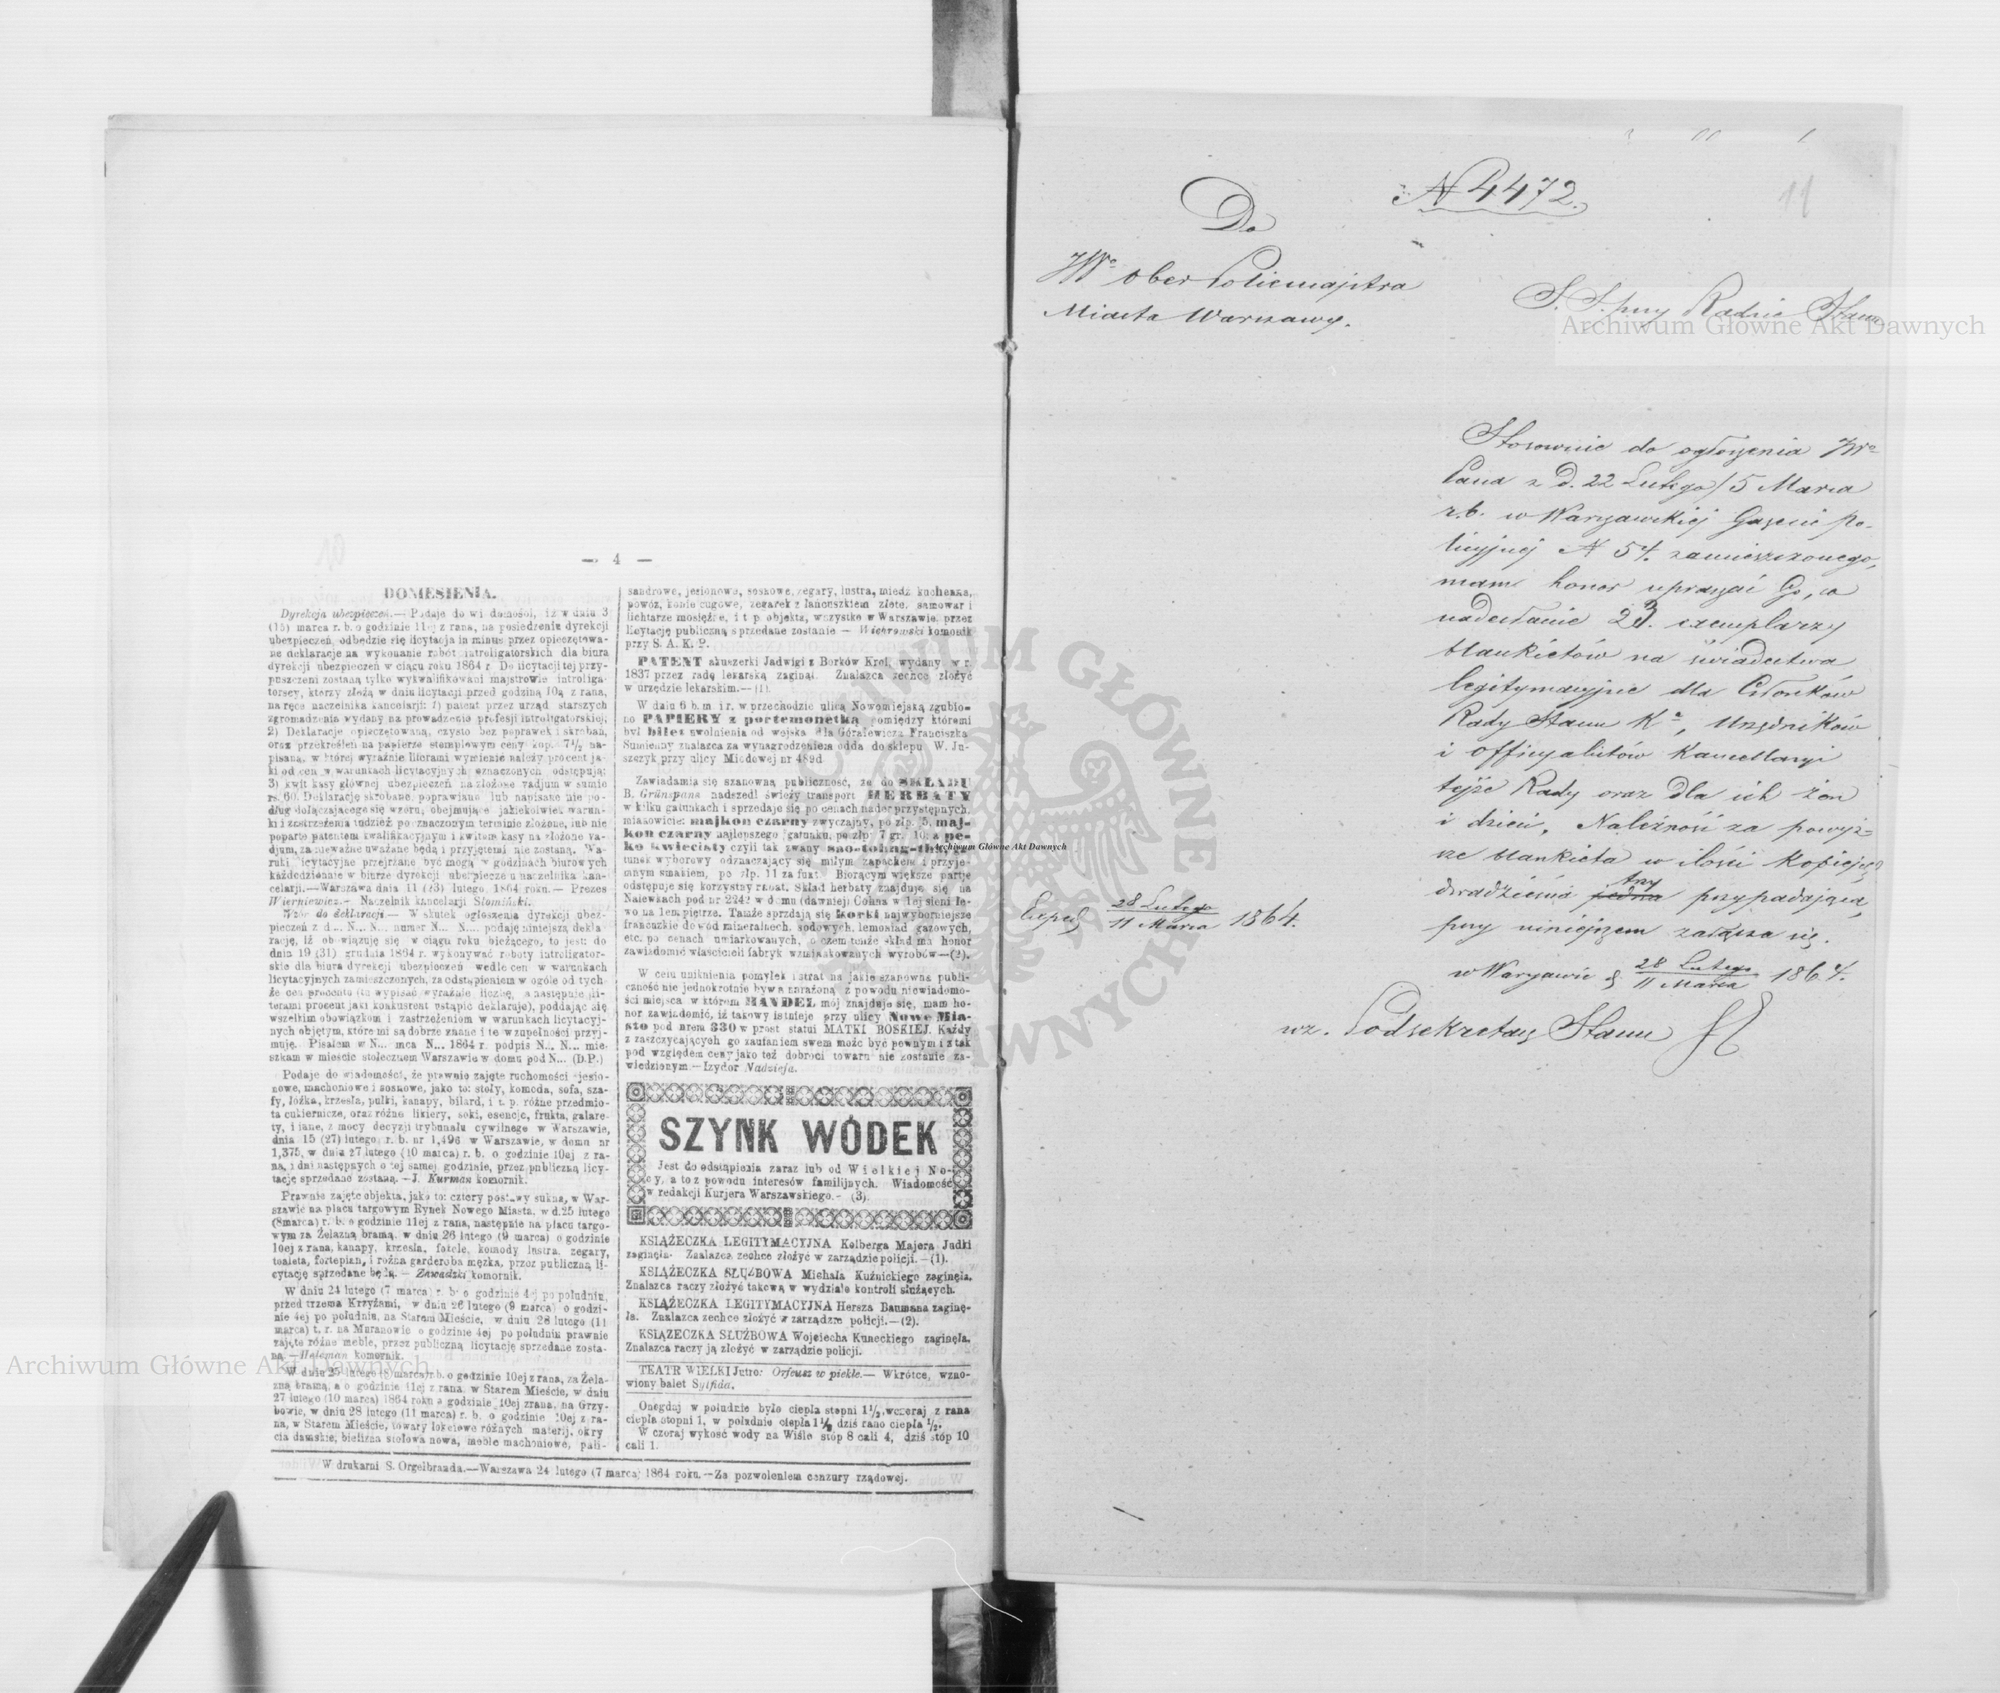 — 4 —
DOMESIENIA.
Dyrekcja ubezpieczeń.— Podaje do wiadomości, iż w dniu 3
(15) marca r. b. o godzinie 11ej z rana, na posiedzeniu dyrekcji
ubezpieczeń, odbędzie się licytacja in minus przez opieczętowa-
ne deklaracje na wykonanie robót introligatorskich dla biura
dyrekcji ubezpieczeń w ciągu roku 1864 r. Do licytacji tej przy-
puszczeni zostaną tylko wykwalifikowani majstrowie introliga-
torscy, którzy złożą w dniu licytacji przed godziną 10ą z rana,
na ręce naczelnika kancelarji: 1) patent przez urząd starszych
zgromadzenia wydany na prowadzenie profesji introligatorskiej,
2) Deklaracje opieczętowaną, czysto bez poprawek i skrobań,
oraz przekreśleń na papierze stemplowym ceny kop. 7½ na-
pisaną, w której wyraźnie literami wymienić należy procent ja-
ki od cen w warunkach licytacyjnych oznaczonych odstępują;
3) kwit kasy głównej ubezpieczeń na złożone vadjum w sumie
rs. 60. Deklarację skrobane, poprawiane lub napisane nie po-
dług dołączającego się wzoru, obejmujące jakiekolwiek warun-
ki i zastrzeżenia tudzież po oznaczonym terminie złożone, lub nie
poparte patentem kwalifikacyjnym i kwitem kasy na złożone va-
djum, za nieważne uważane będą i przyjętemi nie zostaną. Wa-
runki licytacyjne przejrzane być mogą w godzinach biurowych
każdodziennie w biurze dyrekcji ubezpieczeń u naczelnika kan-
celarji.—Warszawa dnia 11 (23) lutego 1864 roku.— Prezes
Wierniewicz.- Naczelnik kancelarji Słomiński.
Wzór do deklaracji.— W skutek ogłoszenia dyrekcji ubez-
pieczeń z d... N... N... numer N... N... podaję niniejszą dekla-
rację, iż obowiązuję się w ciągu roku bieżącego, to jest: do
dnia 19 (31) grudnia 1864 r. wykonywać roboty introligator-
skie dla biura dyrekcji ubezpieczeń wedle cen w warunkach
licytacyjnych zamieszczonych, za odstąpieniem w ogóle od tych-
że cen procentu (tu wypisać wyraźnie liczbę, a następnie li-
terami procent jaki konkurent ustąpić deklaruje), poddając się
wszelkim obowiązkom i zastrzeżeniom w warunkach licytacyj-
nych objętym, które mi są dobrze znane i te w zupełności przyj-
muję. Pisałem w N... mca N... 1864 r. podpis N... N... mie-
szkam w mieście stołecznem Warszawie w domu pod N... (D.P.)
Podaje do wiadomości, że prawnie zajęte ruchomości jesio-
nowe, machoniowe i sosnowe, jako to: stoły, komoda, sofa, sza-
fy, łóżka, krzesła, pułki, kanapy, bilard, i t. p. różne przedmio-
ta cukiernicze, oraz różne likiery, soki, esencje, frukta, galare-
ty, i inne, z mocy decyzji trybunału cywilnego w Warszawie,
dnia 15 (27) lutego r. b. nr 1,496 w Warszawie, w domu nr
1,375, w dniu 27 lutego (10 marca) r. b. o godzinie 10ej z ra-
na, i dni następnych o tej samej godzinie, przez publiczną licy-
tację sprzedane zostaną.—J. Kurman komornik.
Prawnie zajęte objekta, jako to: cztery postawy sukna, w War-
szawie na placu targowym Rynek Nowego Miasta, w d. 25 lutego
(8 marca) r. b. o godzinie 11ej z rana, następnie na placu targo-
wym za Żelazną bramą, w dniu 26 lutego (9 marca) o godzinie
10ej z rana, kanapy, krzesła, fotele, komody lustra, zegary,
toaleta, fortepian, i różna garderoba męzka, przez publiczną li-
cytację sprzedane będą. — Zawadzki komornik.
W dniu 24 lutego (7 marca) r. b. o godzinie 4ej po południu,
przed trzema Krzyżami, w dniu 26 lutego (9 marca) o godzi-
nie 4ej po południu, na Starem Mieście, w dniu 28 lutego (11
marca) t. r. na Muranowie o godzinie 4ej po południu prawnie
zajęte różne meble, przez publiczną licytację sprzedane zosta-
ną.—Haleman komornik.
W dniu 25 lutego (8) marca r. b. o godzinie 10ej z rana, za Żela-
zną bramą, a o godzinie 11ej z rana, w Starem Mieście, w dniu
27 lutego (10 marca) 1864 roku o godzinie 10ej zrana, na Grzy-
bowie, w dniu 28 lutego (11 marca) r. b. o godzinie 10ej z ra-
na, w Starem Mieście, towary łokciowe różnych materij, okry
cia damskie, bielizna stołowa nowa, meble machoniowe, pali-
sandrowe, jesionowe, sosnowe, zegary, lustra, miedź kuchenna,
powóz, konie cugowe, zegarek z łańcuszkiem złote, samowar i
lichtarze mosiężne, i t. p. objekta, wszystko w Warszawie, przez
licytację publiczną sprzedane zostanie — Wichrowski komornik
przy S. A. K. P.
PATENT akuszerki Jadwigi z Borków Krel, wydany w r.
1837 przez radę lekarską zaginął. Znalazca zechce złożyć
w urzędzie lekarskim.—(1).
W dniu 6 b. m. i r. w przechodzie ulicą Nowomiejską zgubio-
no PAPIERY z portemonetką pomiędzy któremi
był bilet uwolnienia od wojska dla Górałewicza Franciszka
Sumienny znalazca za wynagrodzeniem odda do sklepu W. Ju-
szczyk przy ulicy Miodowej nr 489d.
Zawiadamia się szanowną publiczność, że do SKŁADU
B. Grünspana nadszedł świeży transport HERBATY
w kilku gatunkach i sprzedaje się po cenach nader przystępnych,
mianowicie: majkon czarny zwyczajny, po złp. 5, maj-
kon czarny najlepszego gatunku, po złp. 7 gr. 10; a pe-
ko kwiecisty czyli tak zwany
tunek wyborowy odznaczający się miłym zapachem i przyje-
mnym smakiem, po złp. 11 za funt. Biorącym większe partje
odstępuje się korzystny rabat. Skład herbaty znajduje się na
Nalewkach pod nr 2242 w domu (dawniej) Cohna w 1ej sieni le-
wo na 1em piętrze. Tamże sprzdają się korki najwyborniejsze
francuzkie do wód mineralnych, sodowych, lemoniad gazowych,
etc. po cenach umiarkowanych, o czem tenże skład ma honor
zawiadomić właścicieli fabryk wzmiankowanych wyrobów—(2).
W celu uniknienia pomyłek i strat na jakie szanowna publi-
czność nie jednokrotnie bywa narażoną z powodu niewiadomo-
ści miejsca, w którem HANDEL mój znajduje się, mam ho-
nor zawiadomić, iż takowy istnieje przy ulicy Nowe Mia-
sto pod nrem 330 w prost statui MATKI BOSKIEJ. Każdy
z zaszczycających go zaufaniem swem może być pewnym iż tak
pod względem ceny jako też dobroci towaru nie zostanie za-
wiedzionym.—Izydor Nadzieja.
SZYNK WÓDEK
Jest do odstąpienia zaraz lub od Wielkiej No-
cy, a to z powodu interesów familijnych. Wiadomość
w redakcji Kurjera Warszawskiego.- (3).
KSIĄŻECZKA LEGITYMACYJNA Kolberga Majera Judki
zaginęła. Znalazca zechce złożyć w zarządzie policji.—(1).
KSIĄŻECZKA SŁUŻBOWA Michała Kuźnickiego zaginęła.
Znalazca raczy złożyć takową w wydziale kontroli służących.
KSIĄŻECZKA LEGITYMACYJNA Hersza Baumana zaginę-
ła. Znalazca zechce złożyć w zarządzie policji.—(2).
KSIĄŻECZKA SŁUŻBOWA Wojciecha Kuneckiego zaginęła.
Znalazca raczy ją złożyć w zarządzie policji.
TEATR WIELKI Jutro: Orfeusz w piekle.— Wkrótce, wzno-
wiony balet Sylfida.
Onegdaj w południe było ciepła stopni 1½, wczoraj z rana
ciepła stopni 1, w południe ciepła 1½ dziś rano ciepła ½.
W czoraj wykość wody na Wiśle stóp 8 cali 4, dziś stóp 10
cali 1.
W drukarni S. Orgelbranda.—Warszawa 24 lutego (7 marca) 1864 roku.—Za pozwoleniem cenzury rządowej.
N 4472.
11
Do
JWo Ober Policmajstra
Miasta Warszawy.
S. S. przy Radzie Stanu
Stosownie do ogłoszenia JWo
Pana z D. 22 Lutego/5 Marca
r.b. w Warszawskiej Gazecie Po-
licyjnej N 54. zamieszczonego,
mam honor upraszać Go, o
nadesłanie 23. exemplarzy
blankietów na świadectwa
legitymacyjne dla Członków
Rady Stanu Ka, Urzędników
i officyalistów Kancellaryi
tejże Rady oraz dla ich żon
i dzieci, Należność za powyż-
sze blankieta w ilości Kopiejek
dwadzieścia jedna trzy przypadająca,
przy niniejszem załącza się.
w Warszawie d 28 Lutego/11 Marca 1864.
wz. Podsekretarz Stanu
Exped 28 Lutego/11 Marca 1864.
Archiwum Główne Akt Dawnych
Archiwum Główne Akt Dawnych
Archiwum Główne Akt Dawnych
ARCHIWUM GŁÓWNE AKT DAWNYCH